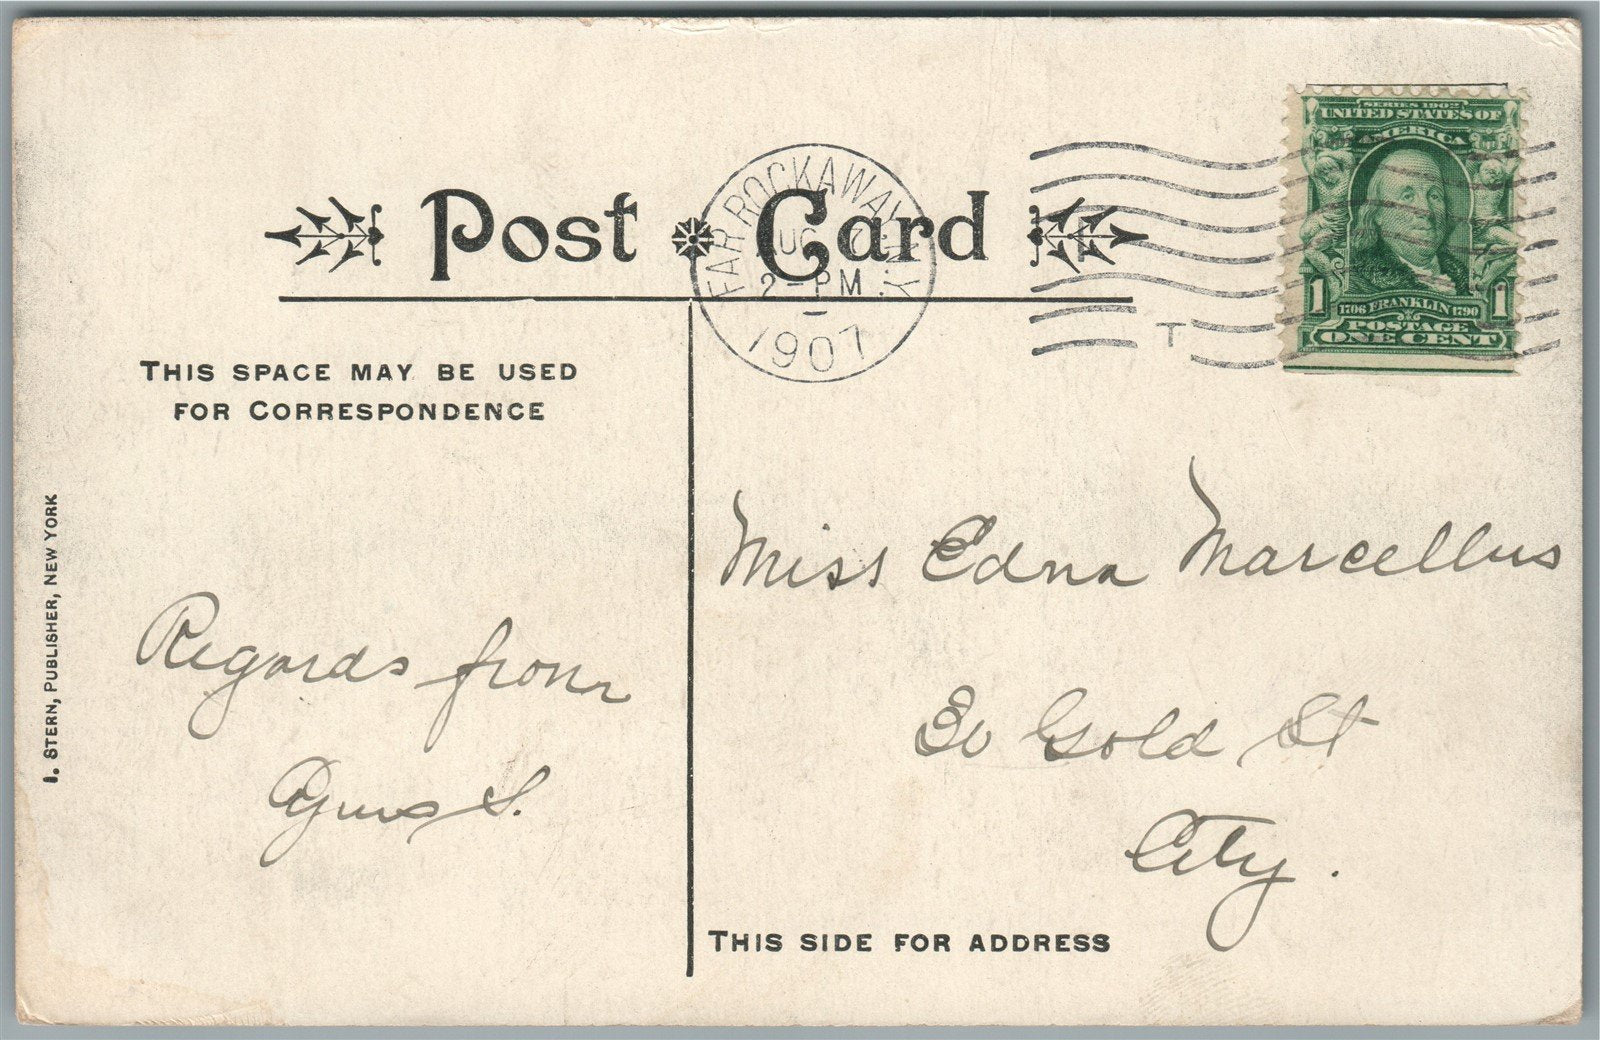 Post Card
FAR ROCKAWAY N.Y.
AUG 7
2-PM
1907
T
SERIES 1902
UNITED STATES OF
AMERICA
1 1706 FRANKLIN 1790 1
POSTAGE
ONE CENT
THIS SPACE MAY BE USED
FOR CORRESPONDENCE
I. STERN, PUBLISHER, NEW YORK
Regards from
S.
Miss Edna Marcellus
30 Gold St
City.
THIS SIDE FOR ADDRESS